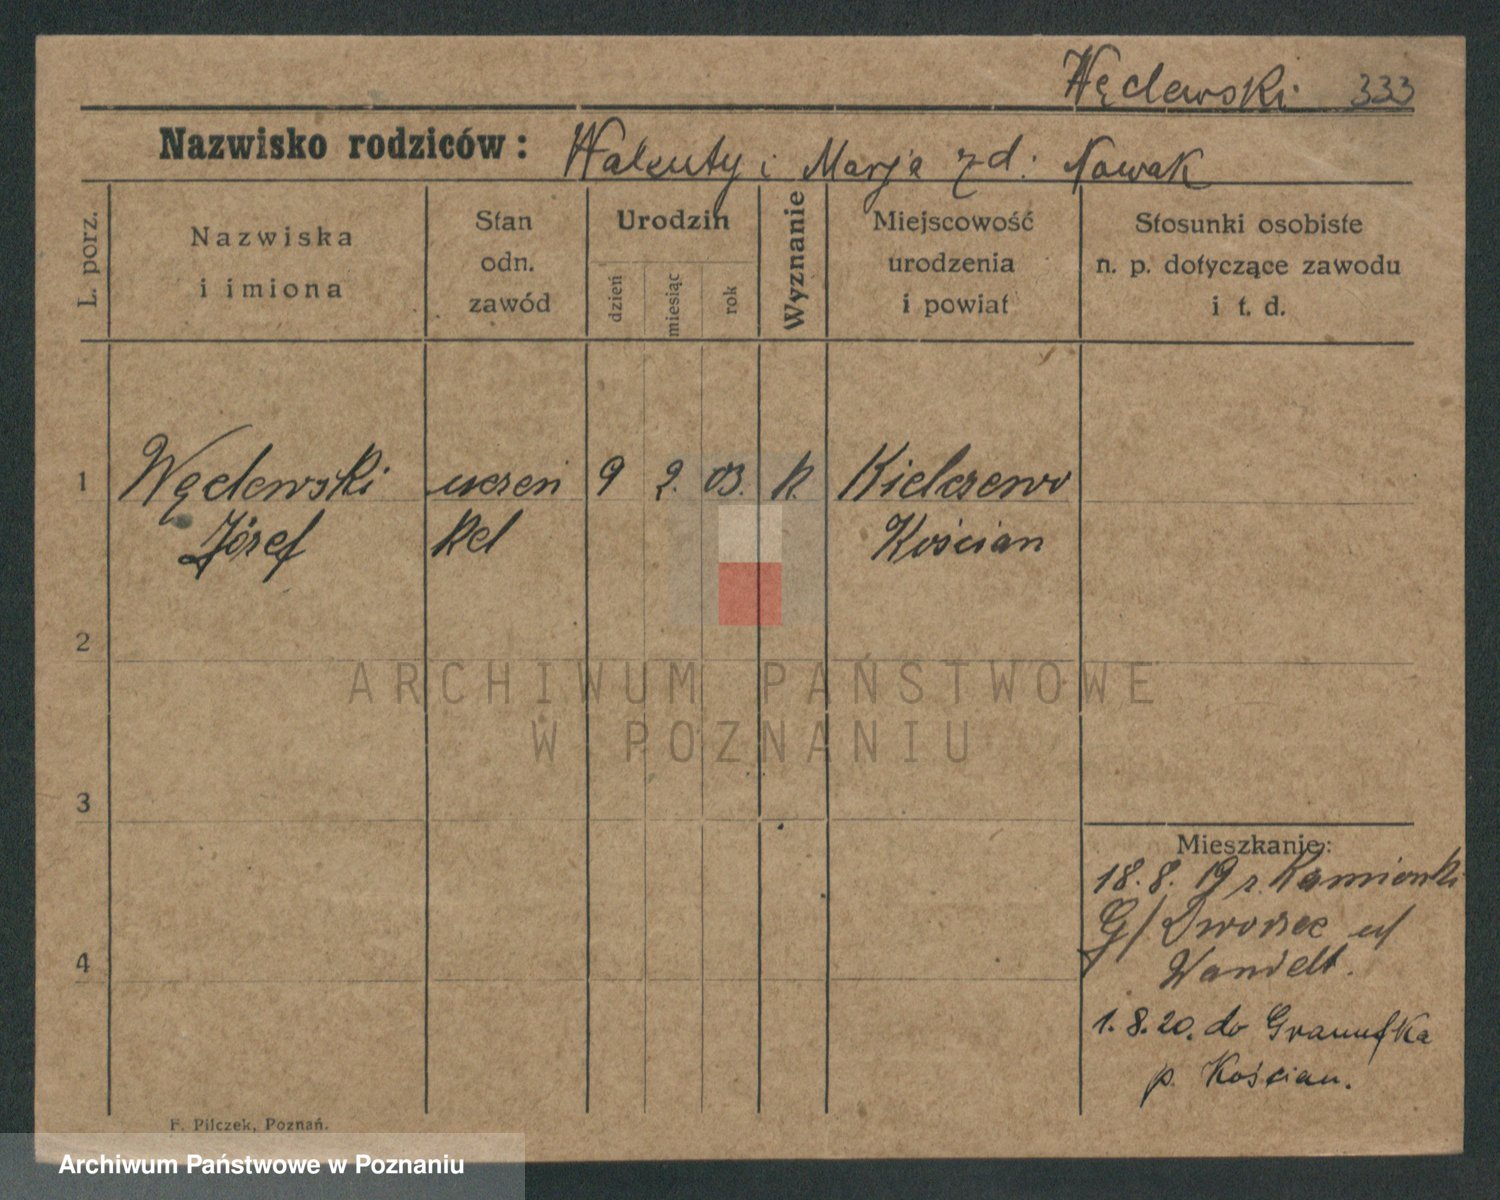 Węclewski 333
Nazwisko rodziców: Walenty i Marja z d. Nowak
L. porz.
Nazwiska
i imiona
Stan
odn.
zawód
Urodzin
dzień
miesiąc
rok
Wyznanie
Miejscowość
urodzenia
i powiat
Stosunki osobiste
n. p. dotyczące zawodu
i t. d.
1 Węclewski uczeń 9 2. 03. k. Kielczewo
Józef kel Kościan
2
3
4
Mieszkanie:
18. 8. 19 z Kamionki
G/ Dworzec u/
Wandelt.
1. 8. 20. do
p. Kościan.
F. Pilczek, Poznań.
ARCHIWUM PAŃSTWOWE
W POZNANIU
Archiwum Państwowe w Poznaniu